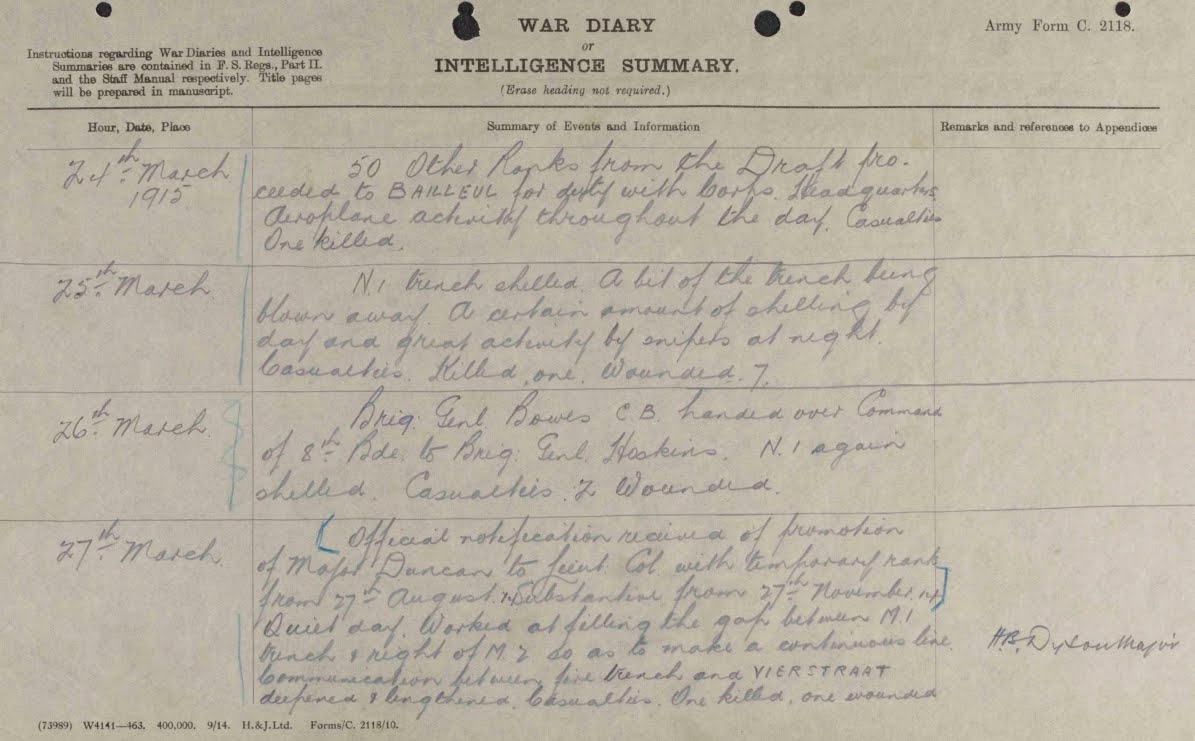 WAR DIARY
or
INTELLIGENCE SUMMARY.
(Erase heading not required.)
Army Form C. 2118.
Instructions regarding War Diaries and Intelligence
Summaries are contained in F. S. Regs., Part II.
and the Staff Manual respectively. Title pages
will be prepared in manuscript.
Hour, Date, Place
Summary of Events and Information
Remarks and references to Appendices
24th March
1915
50 Other Ranks from the Draft pro-
ceeded to BAILLEUL for duty with Corps. Headquarters
Aeroplane activity throughout the day. Casualties
One killed.
25th March
N.1 trench shelled. A bit of the trench being
blown away. A certain amount of shelling by
day and great activity by snipers at night.
Casualties. Killed, one. Wounded. 7.
26th March
Brig: Genl. Bowes C.B. handed over Command
of 8th Bde. to Brig: Genl. Hoskins. N.1 again
shelled. Casualties. 2 Wounded.
27th March
Official notification received of promotion
of Major Duncan to Lieut. Col. with temporary rank
from 27th August. & Substantive from 27th November.
Quiet day. Worked at filling the gap between M.1
trench & right of M.2 so as to make a continuous line.
Communication between fire trench and VIERSTRAAT
deepened & lengthened. Casualties. One killed, one wounded
H.B. Dyson Major
(73989) W4141—463. 400,000. 9/14. H.&J.Ltd. Forms/C. 2118/10.